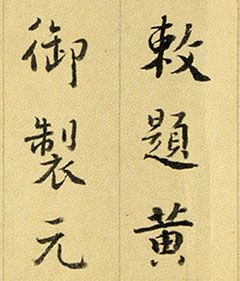 敕題黄
御製元